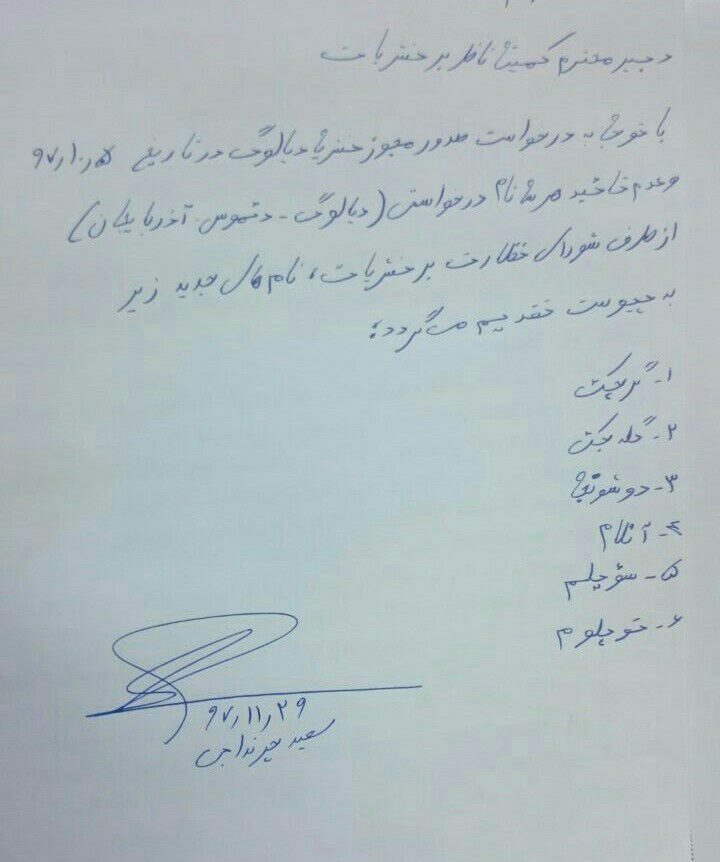 دبیر محترم کمیته ناظر بر نشریات
با توجه به درخواست صدور مجوز نشریه دیالوگ در تاریخ ۹۷٫۱۰٫۵
و عدم تائید هر سه نام درخواستی (دیالوگ - - آذربایجان)
از طرف شورای نظارت بر نشریات، نام های جدید زیر
به پیوست تقدیم می گردد:
۱- گرچک
۲- گله جک
۳- دوشونجه
۴- آنلام
۵- سؤیلم
۶- توپلوم
۹۷٫۱۱٫۲۹
سعید